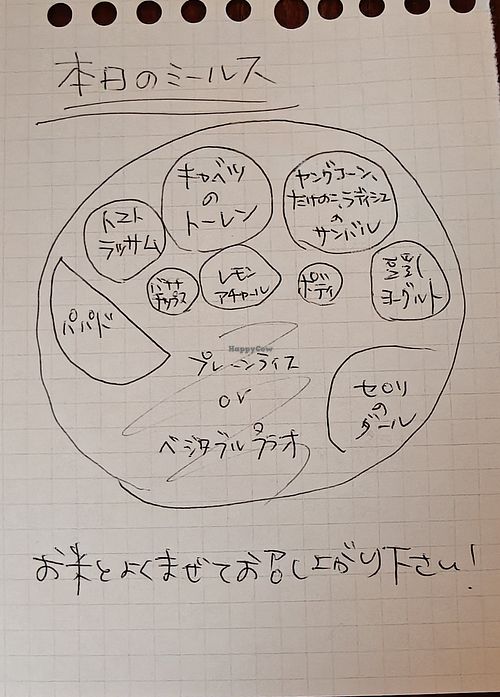 本日のミールス
キャベツ
の
トーレン
ヤングコーン、
たけのこ、ラディシュ
の
サンバル
トマト
ラッサム
バナナ
チップス
レモン
アチャール
ポディ
豆乳
ヨーグルト
パパド
HappyCow
プレーンライス
or
ベジタブルプラオ
セロリ
の
ダール
お米とよくまぜてお召し上がり下さい!